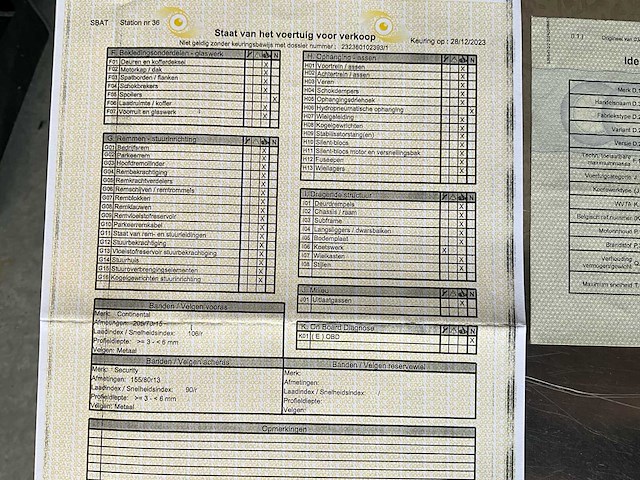 SBAT Station nr 36
Staat van het voertuig voor verkoop
Niet geldig zonder keuringsbewijs met dossier nummer : 232360102393/1
Keuring op : 28/12/2023
F. Bekledingsonderdelen - glaswerk N
F01 Deuren en kofferdeksel X
F02 Motorkap / dak X
F03 Spatborden / flanken X
F04 Schokbrekers X
F05 Spoilers X
F06 Laadruimte / koffer X
F07 Voorruit en glaswerk X
G. Remmen - stuurinrichting N
G01 Bedrijfsrem X
G02 Parkeerrem X
G03 Hoofdremcilinder X
G04 Rembekrachtiging X
G05 Remkrachtverdelers X
G06 Remschijven / remtrommels X
G07 Remblokken X
G08 Remklauwen X
G09 Remvloeistofreservoir X
G10 Parkeerremkabel X
G11 Staat van rem- en stuurleidingen X
G12 Stuurbekrachtiging X
G13 Vloeistofreservoir stuurbekrachtiging X
G14 Stuurhuis X
G15 Stuuroverbrengingselementen X
G16 Kogelgewrichten stuurinrichting X
H. Ophanging - assen N
H01 Voortrein / assen X
H02 Achtertrein / assen X
H03 Veren X
H04 Schokdempers X
H05 Ophangingsdriehoek X
H06 Hydropneumatische ophanging X
H07 Wielgeleiding X
H08 Kogelgewrichten X
H09 Stabilisatorstang(en) X
H10 Silent-blocs X
H11 Silent-blocs motor en versnellingsbak X
H12 Fuseepen X
H13 Wiellagers X
I. Dragende structuur N
I01 Deurdrempels X
I02 Chassis / raam X
I03 Subframe X
I04 Langsliggers / dwarsbalken X
I05 Bodemplaat X
I06 Koetswerk X
I07 Wielkasten X
I08 Stijlen X
J. Milieu N
J01 Uitlaatgassen X
K. On Board Diagnose N
K01 ( E ) OBD X
Banden / Velgen vooras
Merk: Continental
Afmetingen: 205/70/15
Laadindex / Snelheidsindex: 106/r
Profieldiepte: >= 3 - < 6 mm
Velgen: Metaal
Banden / Velgen achteras
Merk: Security
Afmetingen: 155/80/13
Laadindex / Snelheidsindex: 90/r
Profieldiepte: >= 3 - < 6 mm
Velgen: Metaal
Banden / Velgen reservewiel
Merk:
Afmetingen:
Laadindex / Snelheidsindex: /
Profieldiepte:
Velgen:
Opmerkingen
Ide
Merk D.1
Handelsnaam D.
Fabriekstype D.2
Variant D.2
Versie D.2
Techn. toelaatbare
maximummassa
Voertuigcategorie J
Koetswerktype
WVTA K
Belgisch nat.nummer
Motorinhoud P.
Brandstof P.
Verhouding
vermogen/gewicht
Maximum snelheid T